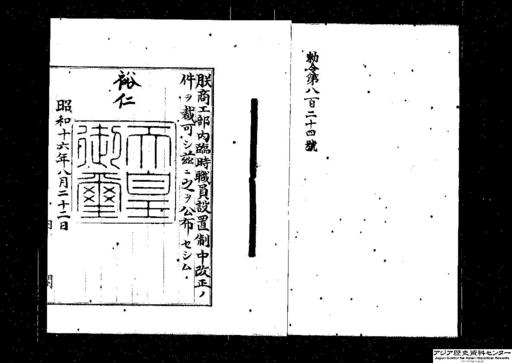 勅令第八百二十四號
朕商工部內臨時職員設置制中改正ノ
件ヲ裁可シ茲ニ之ヲ公布セシム
裕仁
天皇
御璽
昭和十六年八月二十二日
内閣
アジア歴史資料センター
Japan Center for Asian Historical Records